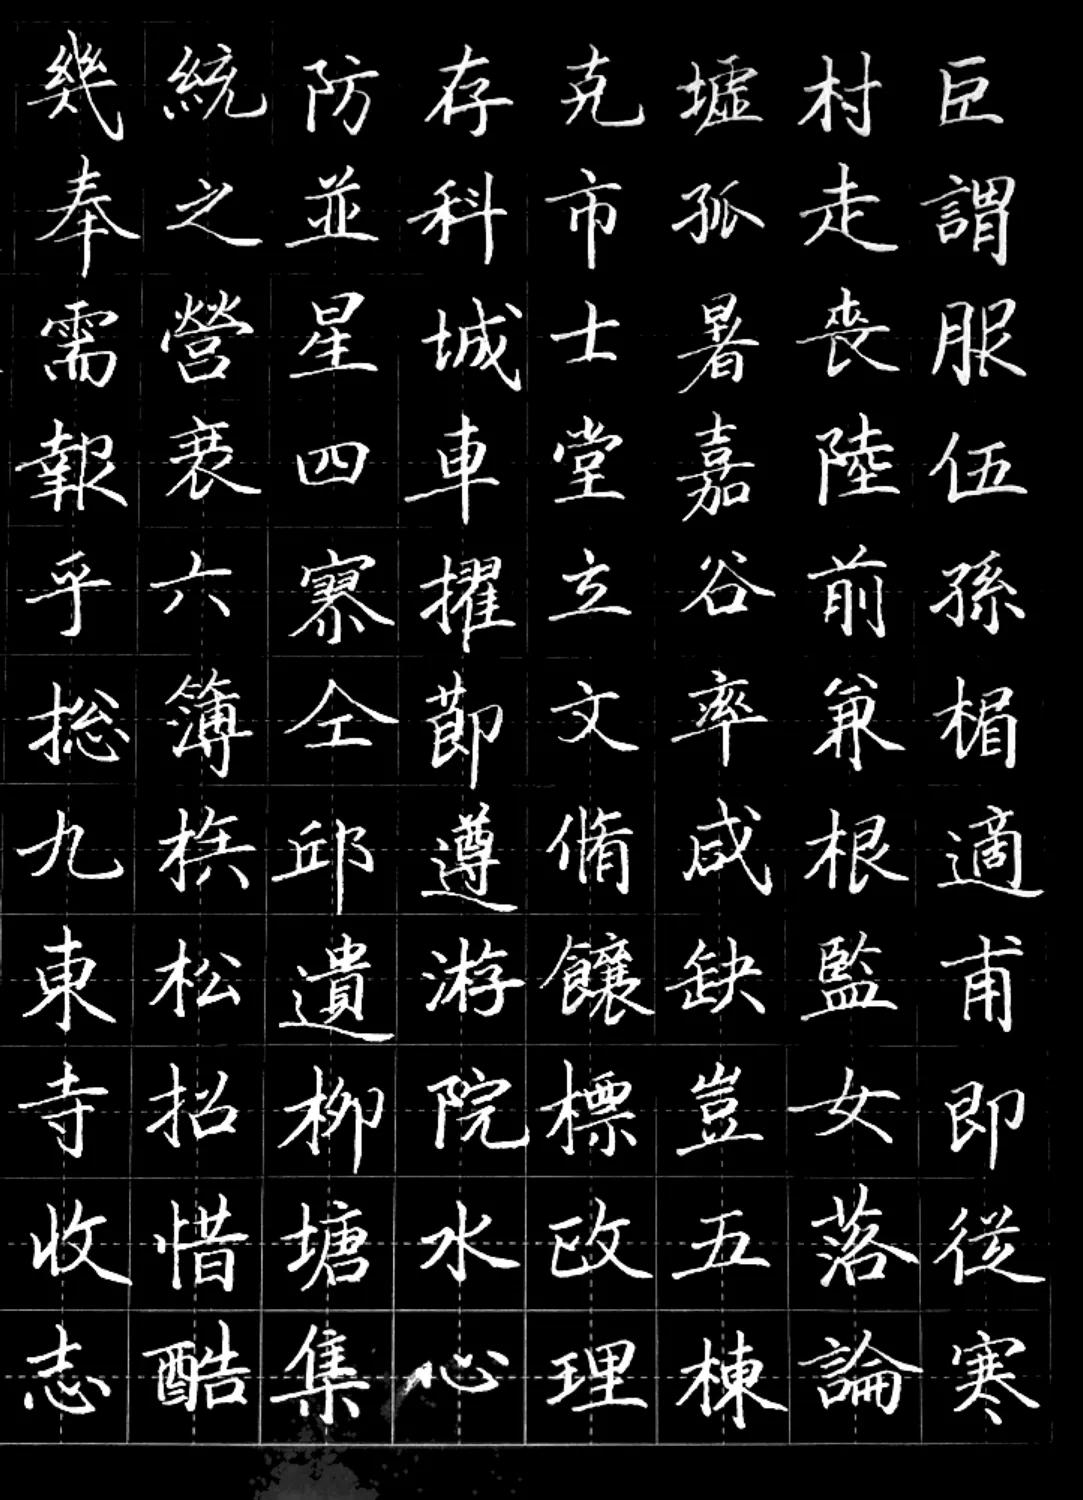 巨謂服伍孫楣適甫即從寒
村走喪陸前兼根監女落論
墟孤暑嘉谷率咸缺豈五棟
克市士堂立文脩饟標改理
存科城車擢節遵游院水心
防並星四寮仝邱遺柳塘集
統之營衰六簿松招惜酷
幾奉需報乎総九東寺收志